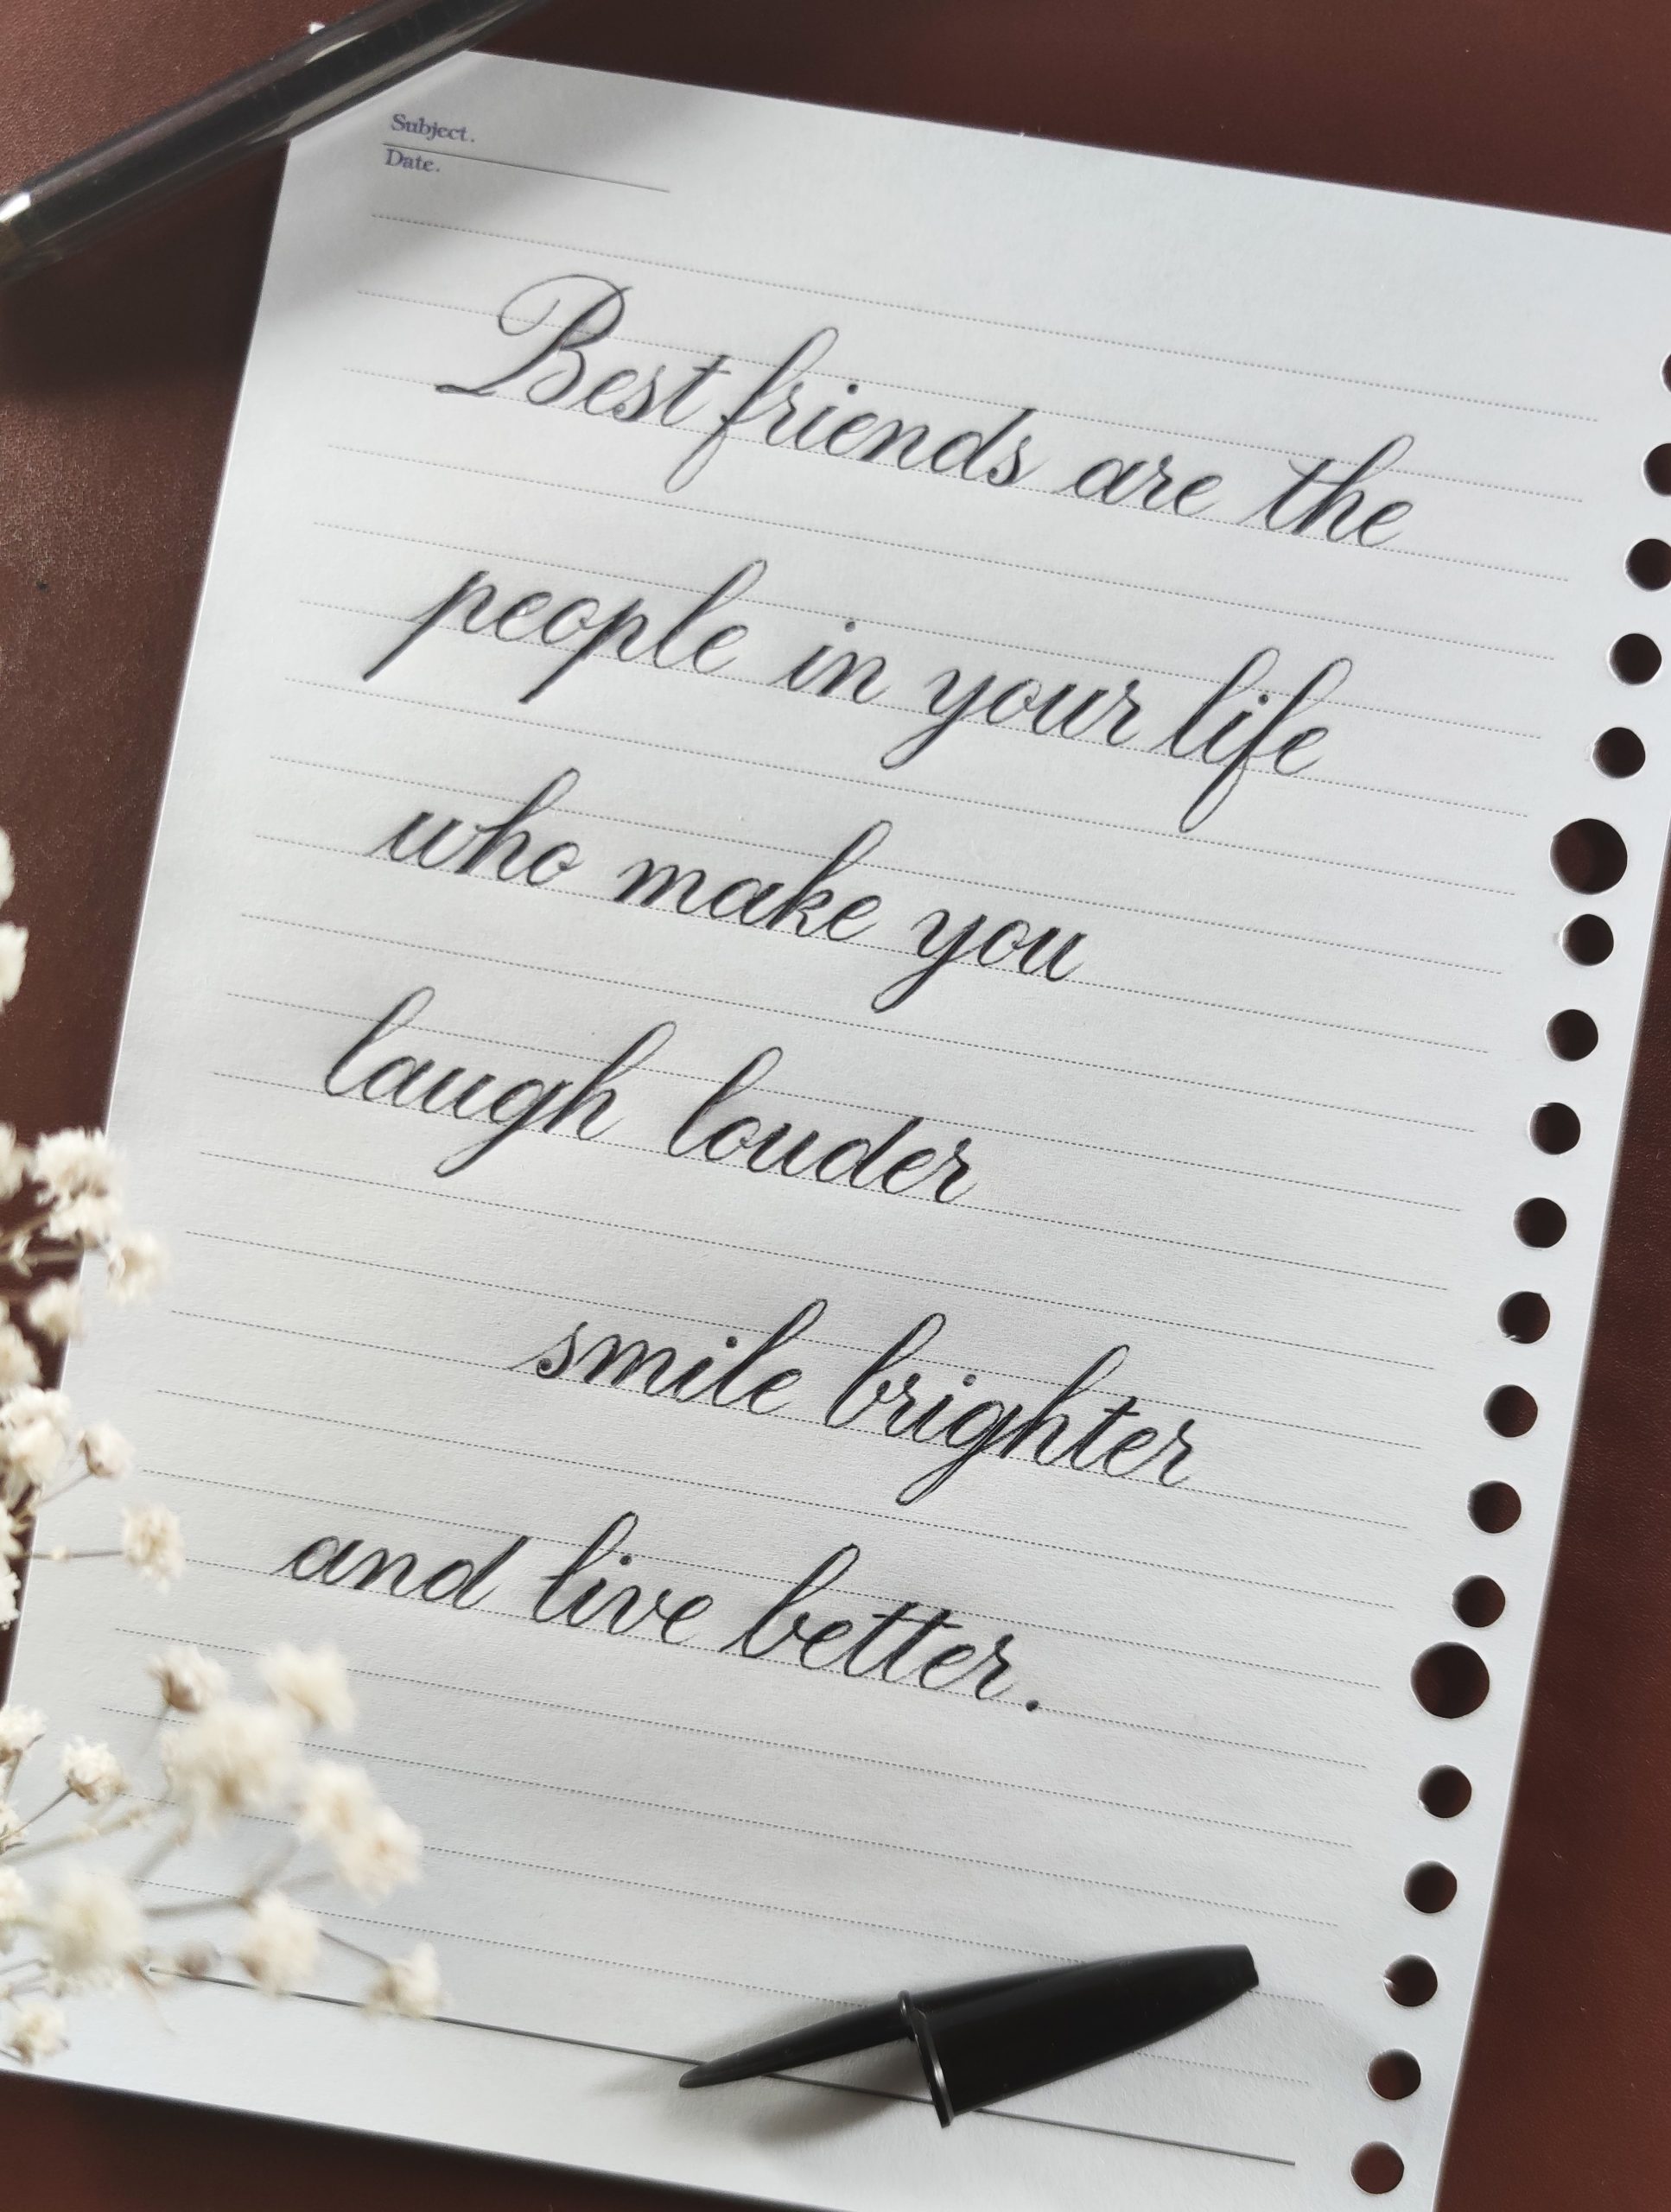 Subject.
Date.
Best friends are the
people in your life
who make you
laugh louder
smile brighter
and live better.